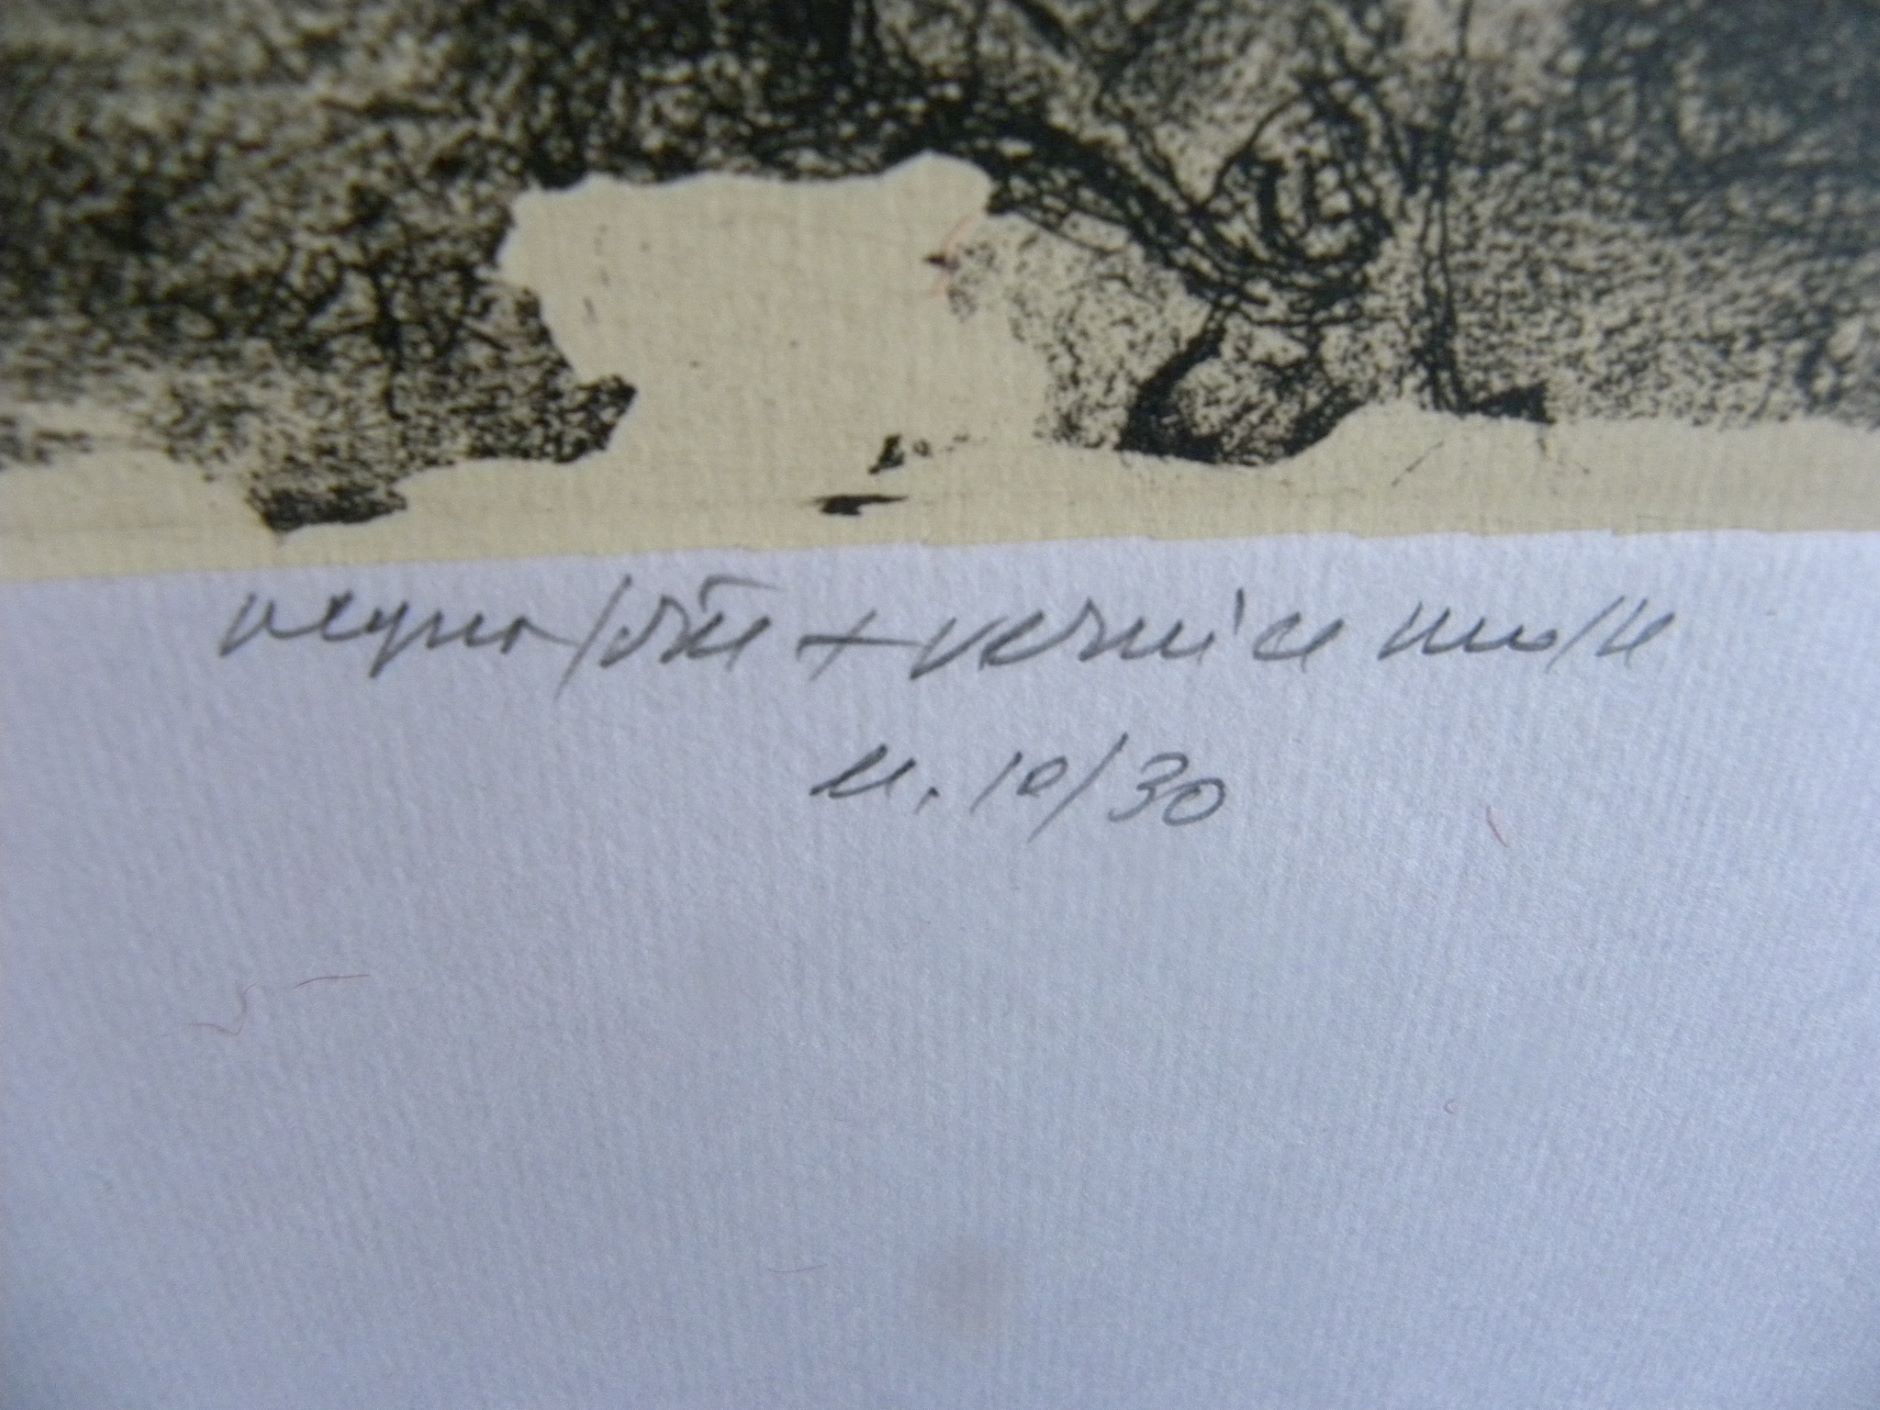 acquaforte + vernice molle
n. 10/30